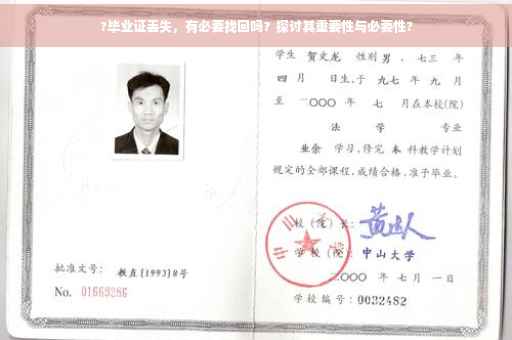 ?毕业证丢失，有必要找回吗？探讨其重要性与必要性?
学生 贺文龙 性别 男，七三 年
四 月 日生，于 九七 年 九 月
至 二〇〇〇 年 七 月在本校(院)
法 学 专业
业余 学习，修完 本 科教学计划
规定的全部课程，成绩合格，准予毕业。
校 (院) 长：
学 校 (院)： 中山大学
二〇〇〇 年 七 月 一 日
学校编号：0032482
批准文号：教直[1993]8号
No. 01669286